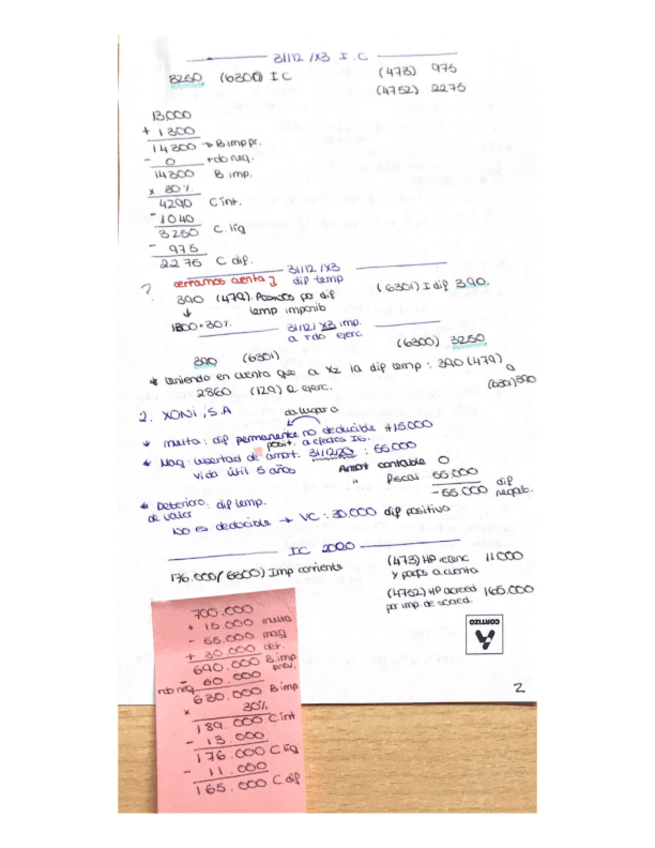 31/12/X3 I.C
3250 (6300) IC (473) 975
(4752) 2275
13.000
+ 1300
14300 → B imp pr.
- 0 rdo neg.
14300 B imp.
x 30%
4290 C int.
- 1040
3250 C. líq
- 975
2275 C dif.
31/12/X3
? cerramos cuenta dif temp
390 (479) Pasivos por dif temp imponib (6301) I dif 390.
↓
1300 · 30%
31/12/X3 imp. a rdo ejerc
390 (6301) (6300) 3250
* teniendo en cuenta que a X2 la dif temp: 390 (479) a (6301) 390
2860 (129) R ejerc.
2. XONI, S.A da lugar a
* multa: dif permanente no deducible +15000
posit. a efectos IS.
* Maq: libertad de amort. 31/12/20 : 55.000
vida útil 5 años Amort contable 0
" fiscal 55.000
-55.000 dif negat.
* Deterioro: dif temp.
de valor
No es deducible → VC: 30.000 dif positivo
IC 2020
176.000 (6300) Imp corriente (473) HP retenc y pagos a cuenta 11000
(4752) HP acreed por imp. de socied. 165.000
CORTIZO
2
700.000
+ 15.000 multa
- 55.000 maq
+ 30.000 det.
690.000 B imp prev.
rdo neg - 60.000
630.000 B imp
x 30%
189.000 C int
- 13.000
176.000 C líq
- 11.000
165.000 C dif